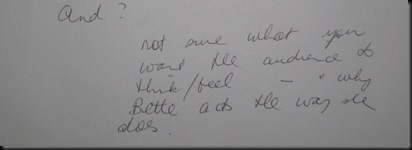 And?
not sure what you
want the audience to
think/feel – & why
Bette acts the way she
does.